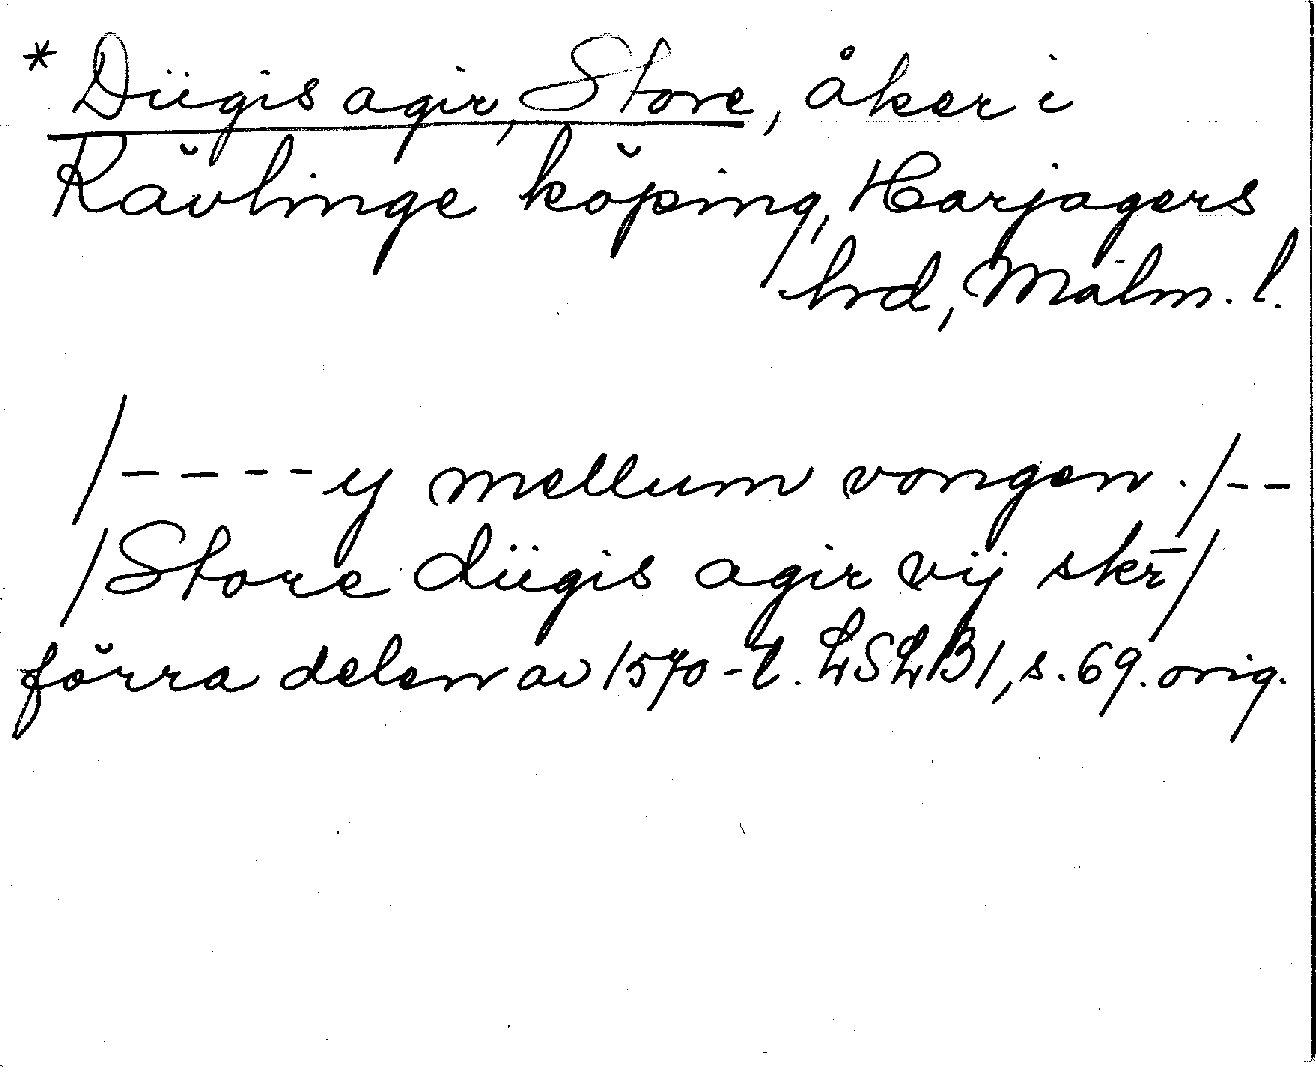 * Diigis agir, Store, åker i
Rävlinge köping, Harjagers
hrd, Malm. l.
/----ij mellum vongen. /--
/Store diigis agir vij skr̄/
förra delen av 1570-t. LSLB1, s. 69. orig.